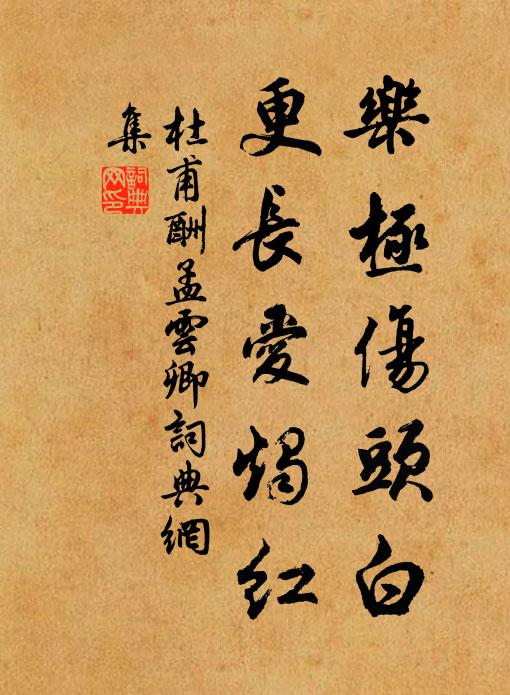 樂極傷頭白
更長愛燭紅
杜甫酬孟雲卿詞典網
集
詞典
网印